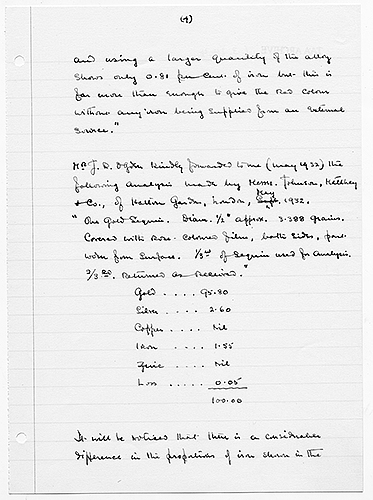 (4)
and using a larger quantity of the alloy
shows only 0.81 per cent. of iron but this is
far more than enough to give the red colour
without any iron being supplied from an external
source."
Mr J. R. Ogden kindly forwarded to me (May 1932) the
following analysis made by Messrs. Johnson, Matthey
& Co., of Hatton Garden, London, May 1932.
"One Gold Sequin. Diam. ½" approx. 3.388 grains.
Covered with Rose-coloured film, both sides, part
worn from surface. ⅓rd of Sequin used for Analysis.
2/3rds. Returned as received."
Gold .... 95.80
Silver .... 2.60
Copper .... Nil
Iron .... 1.55
Zinc .... Nil
Loss ..... 0.05
100.00
It will be noticed that there is a considerable
difference in the proportions of iron shown in the